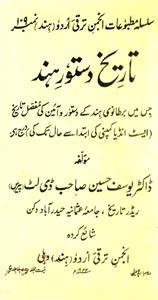 سلسلہ مطبوعات انجمن ترقی اُردو (ہند) نمبر ۱۰۹
تاریخ دستورِ ہند
جس میں برطانوی ہند کے دستور و آئین کی مفصل تاریخ
(ایسٹ انڈیا کمپنی کی ابتدا سے حال تک کی) درج ہے
مولفہ
ڈاکٹر یوسف حسین صاحب ڈی لٹ (پیرس)
ریڈر تاریخ، جامعۂ عثمانیہ حیدرآباد دکن
شائع کردہ
انجمن ترقی اُردو (ہند) دہلی